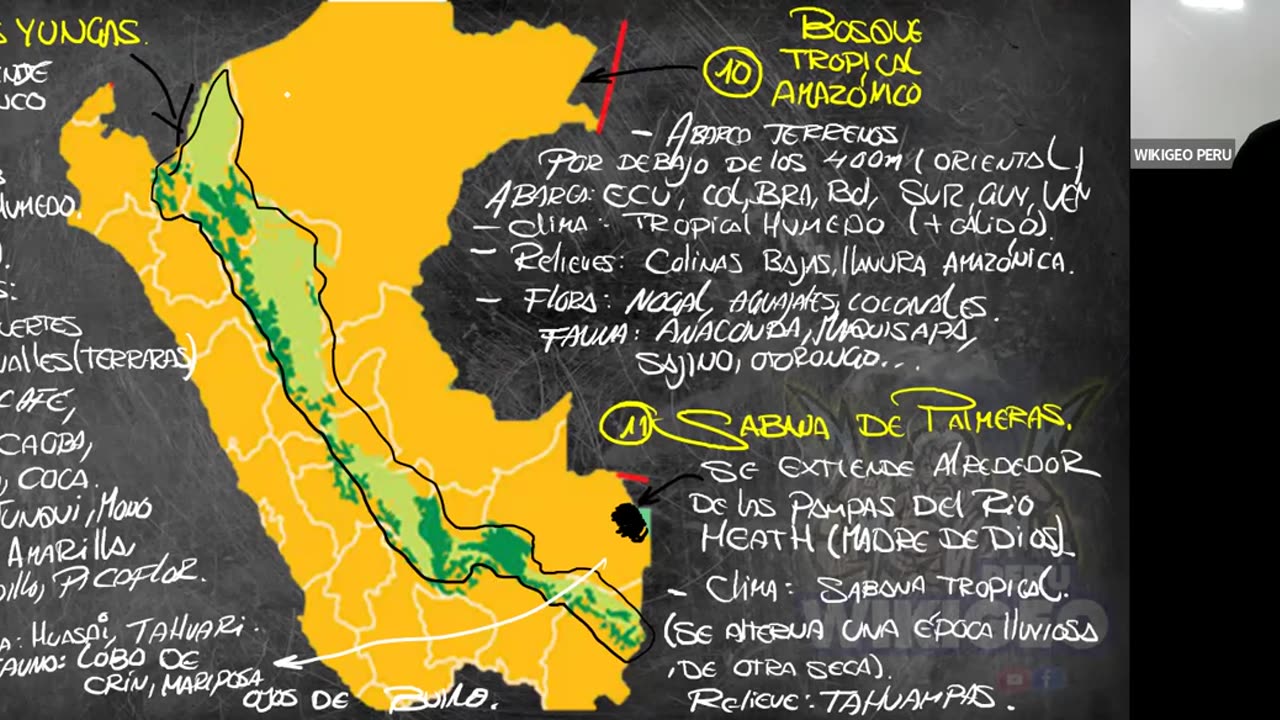 S YUNGAS.
ENDE
NCO
S
HUMEDO.
).
S:
UERTES
VALLES (TERRAZAS)
CAFÉ,
CAOBA,
, COCA.
TUNQUI, MONO
AMARILLA,
DILLO, PICAFLOR.
A: HUASAÍ, TAHUARI.
FAUNA: LOBO DE
CRÍN, MARIPOSA
OJOS DE BUHO.
10 BOSQUE
TROPICAL
AMAZÓNICO
- ABARCO TERRENOS
POR DEBAJO DE LOS 400m (ORIENTAL)
ABARCA: ECU, COL, BRA, BOL, SUR, GUY, VEN
- CLIMA: TROPICAL HUMEDO (+ CÁLIDO).
- RELIEVES: COLINAS BAJAS, LLANURA AMAZÓNICA.
- FLORA: NOGAL, AGUAJALES, COCONALES.
FAUNA: ANACONDA, MAQUISAPA,
SAJINO, OTORONGO...
11 SABANA DE PALMERAS.
SE EXTIENDE ALREDEDOR
DE LOS PAMPAS DEL RÍO
HEATH (MADRE DE DIOS)
- CLIMA: SABANA TROPICAL.
(SE ALTERNA UNA ÉPOCA LLUVIOSA
, DE OTRA SECA).
RELIEVE: TAHUAMPAS.
PERU
WIKIGEO
WIKIGEO PERU